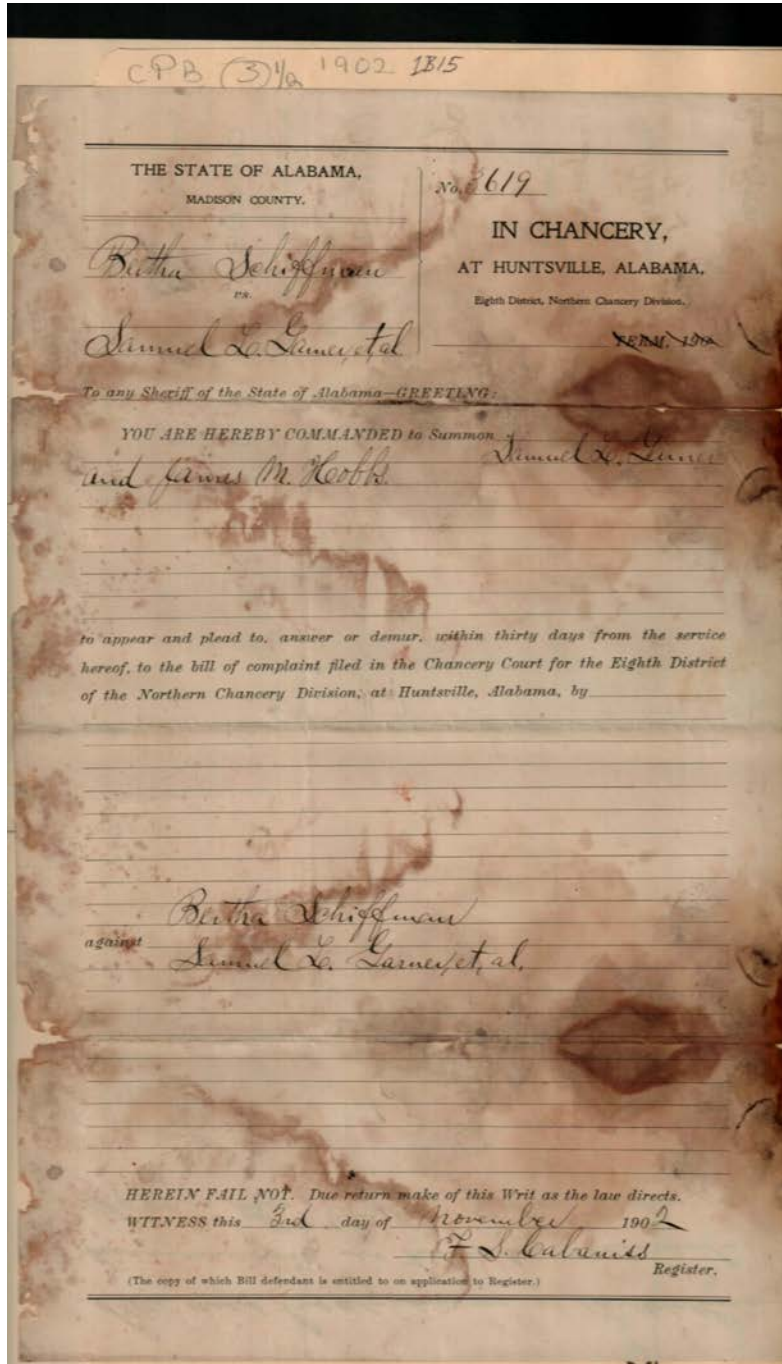 CPB (3) 1/2 1902 1B15
THE STATE OF ALABAMA,
MADISON COUNTY.
No. 3619
IN CHANCERY,
AT HUNTSVILLE, ALABAMA,
Eighth District, Northern Chancery Division.
TERM, 190
Bertha Schiffman
vs.
Samuel L. Garner, et al
To any Sheriff of the State of Alabama—GREETING:
YOU ARE HEREBY COMMANDED to Summon Samuel L. Garner
and James M. Hobbs.
to appear and plead to, answer or demur, within thirty days from the service
hereof, to the bill of complaint filed in the Chancery Court for the Eighth District
of the Northern Chancery Division, at Huntsville, Alabama, by
Bertha Schiffman
against
Samuel L. Garner, et, al.
HEREIN FAIL NOT. Due return make of this Writ as the law directs.
WITNESS this 3rd day of November 1902
F S. Cabaniss
Register.
(The copy of which Bill defendant is entitled to on application to Register.)